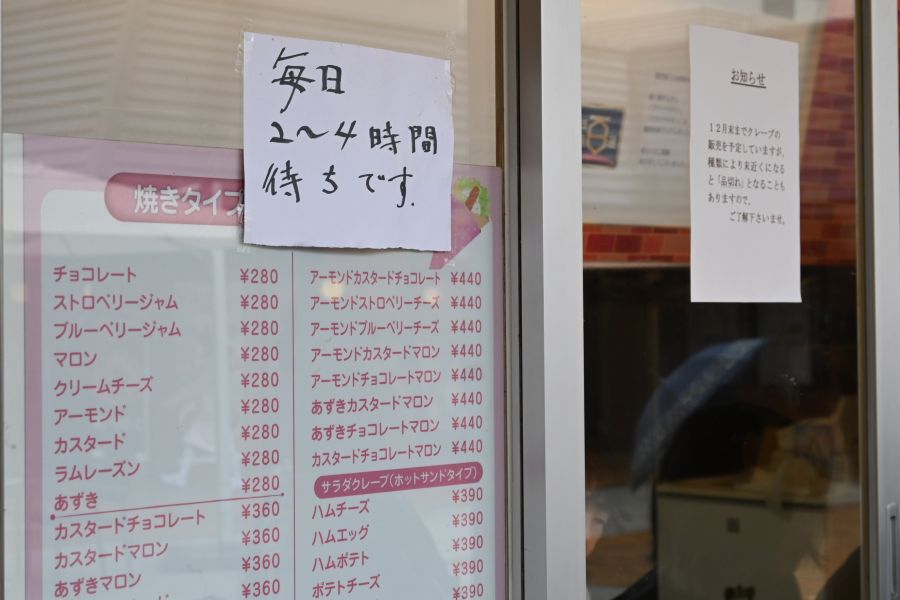 毎日
2〜4時間
待ちです.
焼きタイプ
チョコレート ¥280
ストロベリージャム ¥280
ブルーベリージャム ¥280
マロン ¥280
クリームチーズ ¥280
アーモンド ¥280
カスタード ¥280
ラムレーズン ¥280
あずき ¥280
カスタードチョコレート ¥360
カスタードマロン ¥360
あずきマロン ¥360
¥360
アーモンドカスタードチョコレート ¥440
アーモンドストロベリーチーズ ¥440
アーモンドブルーベリーチーズ ¥440
アーモンドカスタードマロン ¥440
アーモンドチョコレートマロン ¥440
あずきカスタードマロン ¥440
あずきチョコレートマロン ¥440
カスタードチョコレートマロン ¥440
サラダクレープ(ホットサンドタイプ)
ハムチーズ ¥390
ハムエッグ ¥390
ハムポテト ¥390
ポテトチーズ ¥390
¥390
お知らせ
12月末までクレープの
販売を予定していますが、
種類により末近くになる
と「品切れ」となることも
ありますので、
ご了解下さいませ。